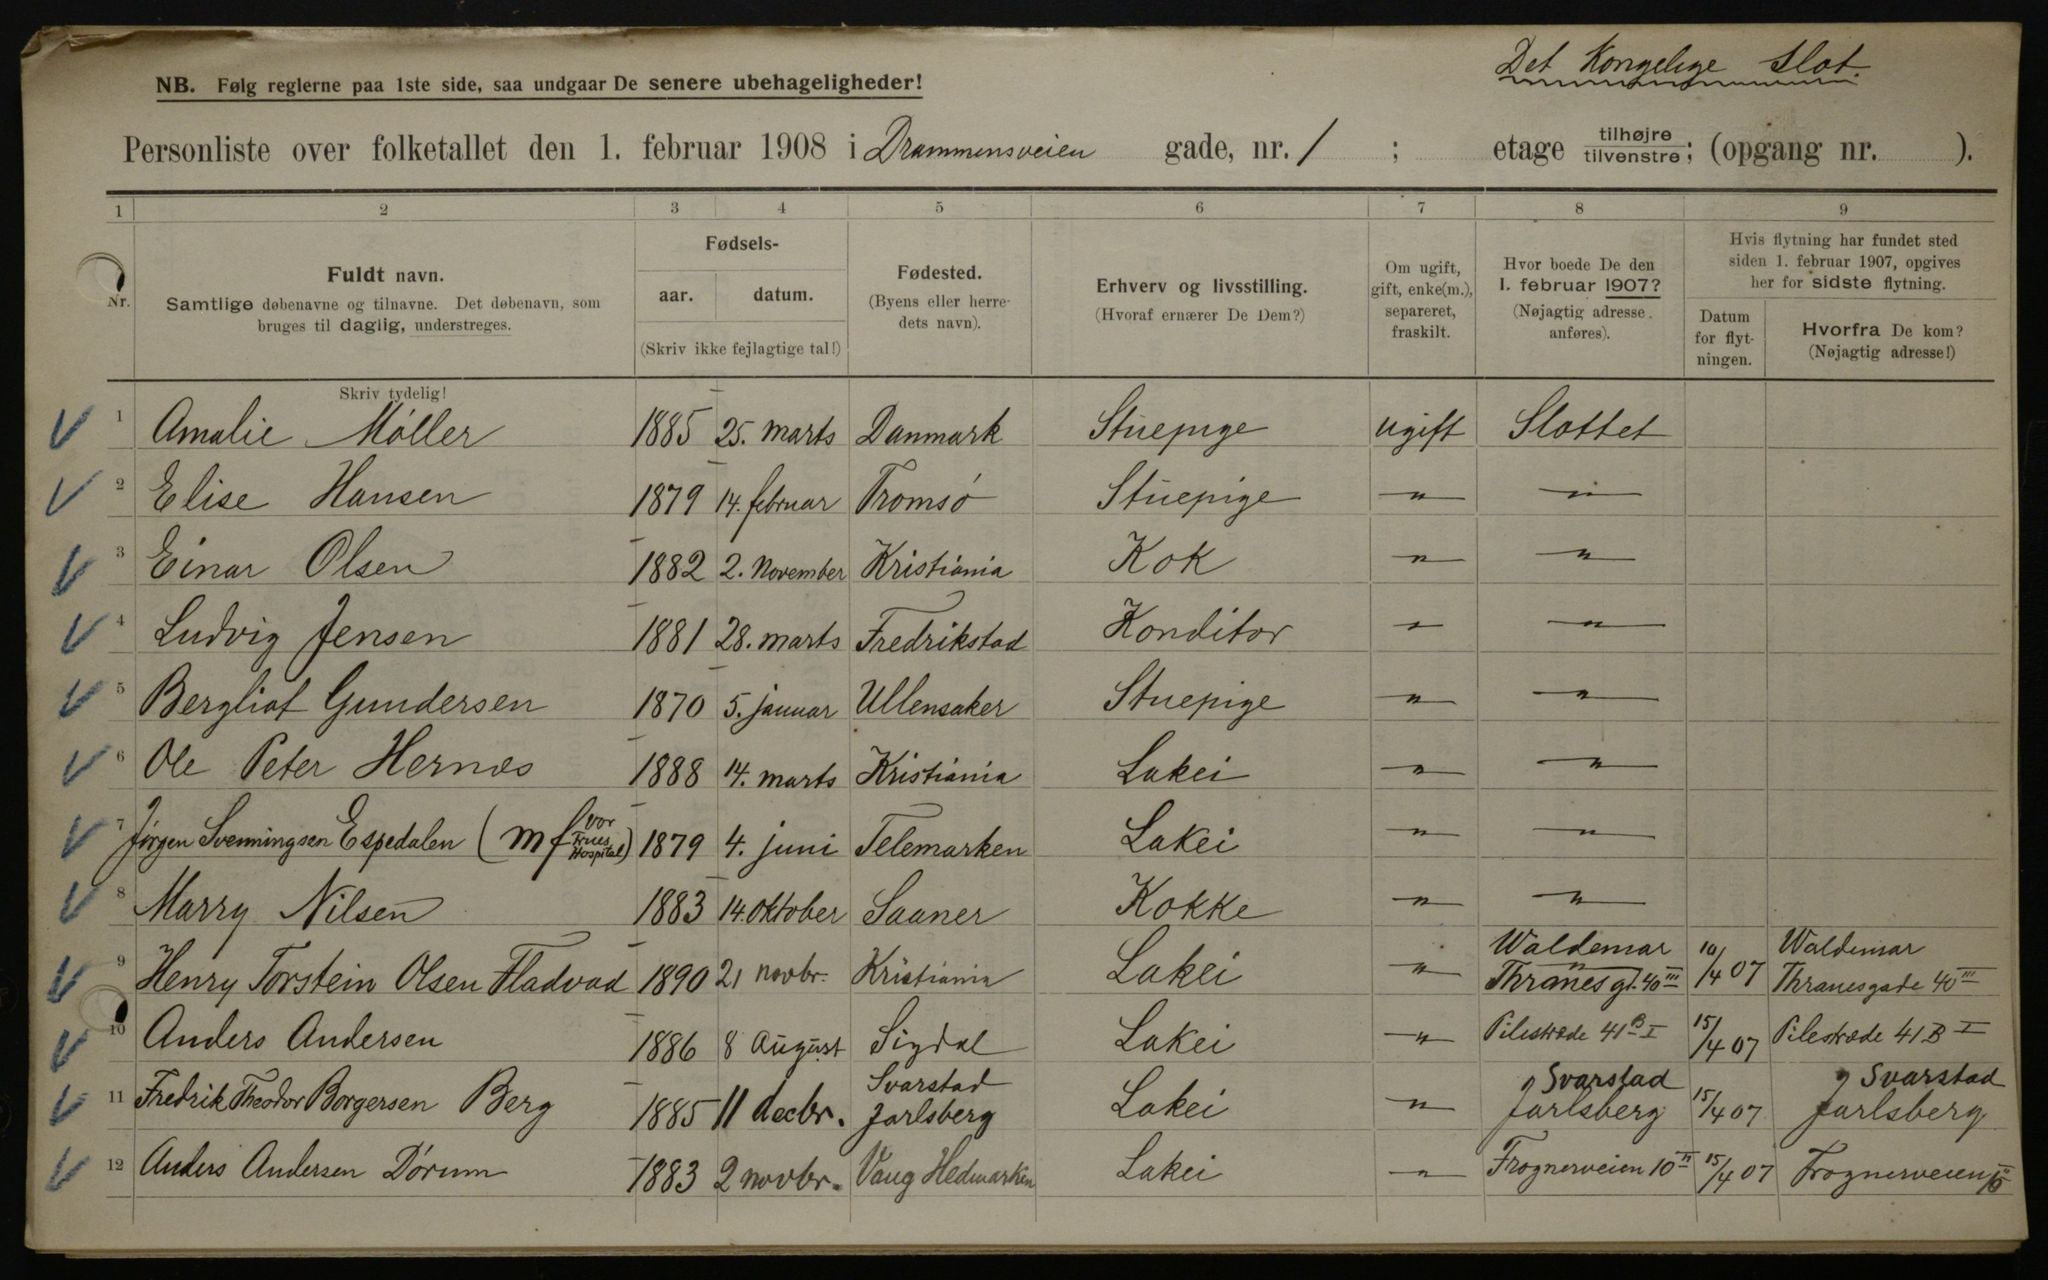 Det Kongelige Slot.
NB. Følg reglerne paa 1ste side, saa undgaar De senere ubehageligheder!
Personliste over folketallet den 1. februar 1908 i Drammensveien gade, nr. 1 ; etage tilhøjre/tilvenstre; (opgang nr. ).
1 2 3 4 5 6 7 8 9
Nr.
Fuldt navn.
Samtlige døbenavne og tilnavne. Det døbenavn, som
bruges til daglig, understreges.
Fødsels-
aar. datum.
(Skriv ikke fejlagtige tal!)
Fødested.
(Byens eller herre-
dets navn).
Erhverv og livsstilling.
(Hvoraf ernærer De Dem?)
Om ugift,
gift, enke(m.),
separeret,
fraskilt.
Hvor boede De den
1. februar 1907?
(Nøjagtig adresse
anføres).
Hvis flytning har fundet sted
siden 1. februar 1907, opgives
her for sidste flytning.
Datum
for flyt-
ningen.
Hvorfra De kom?
(Nøjagtig adresse!)
Skriv tydelig!
1 Amalie Møller 1885 25. marts Danmark Stuepige ugift Slottet
2 Elise Hansen 1879 14. februar Tromsø Stuepige " "
3 Einar Olsen 1882 2. November Kristiania Kok " "
4 Ludvig Jensen 1881 28. marts Fredrikstad Konditor " "
5 Bergliot Gundersen 1870 5. januar Ullensaker Stuepige " "
6 Ole Peter Hernæs 1888 14. marts Kristiania Lakei " "
7 Jørgen Svenningsen Espedalen (mf vor Frues Hospital) 1879 4. juni Telemarken Lakei " "
8 Marry Nilsen 1883 14 oktober Saaner Kokke " "
9 Henry Torstein Olsen Fladvad 1890 21 novbr. Kristiania Lakei " Waldemar Thranesgt. 40 III 10/4 07 Waldemar Thranesgade 40 III
10 Anders Andersen 1886 8 August Sigdal Lakei " Pilestræde 41 B I 15/4 07 Pilestræde 41 B I
11 Fredrik Theodor Borgersen Berg 1885 11 decbr. Svarstad Jarlsberg Lakei " Svarstad Jarlsberg 15/4 07 Svarstad Jarlsberg
12 Anders Andersen Dørum 1883 2 novbr. Vang Hedmarken Lakei " Frognerveien 10 II 15/4 07 Frognerveien 10 II